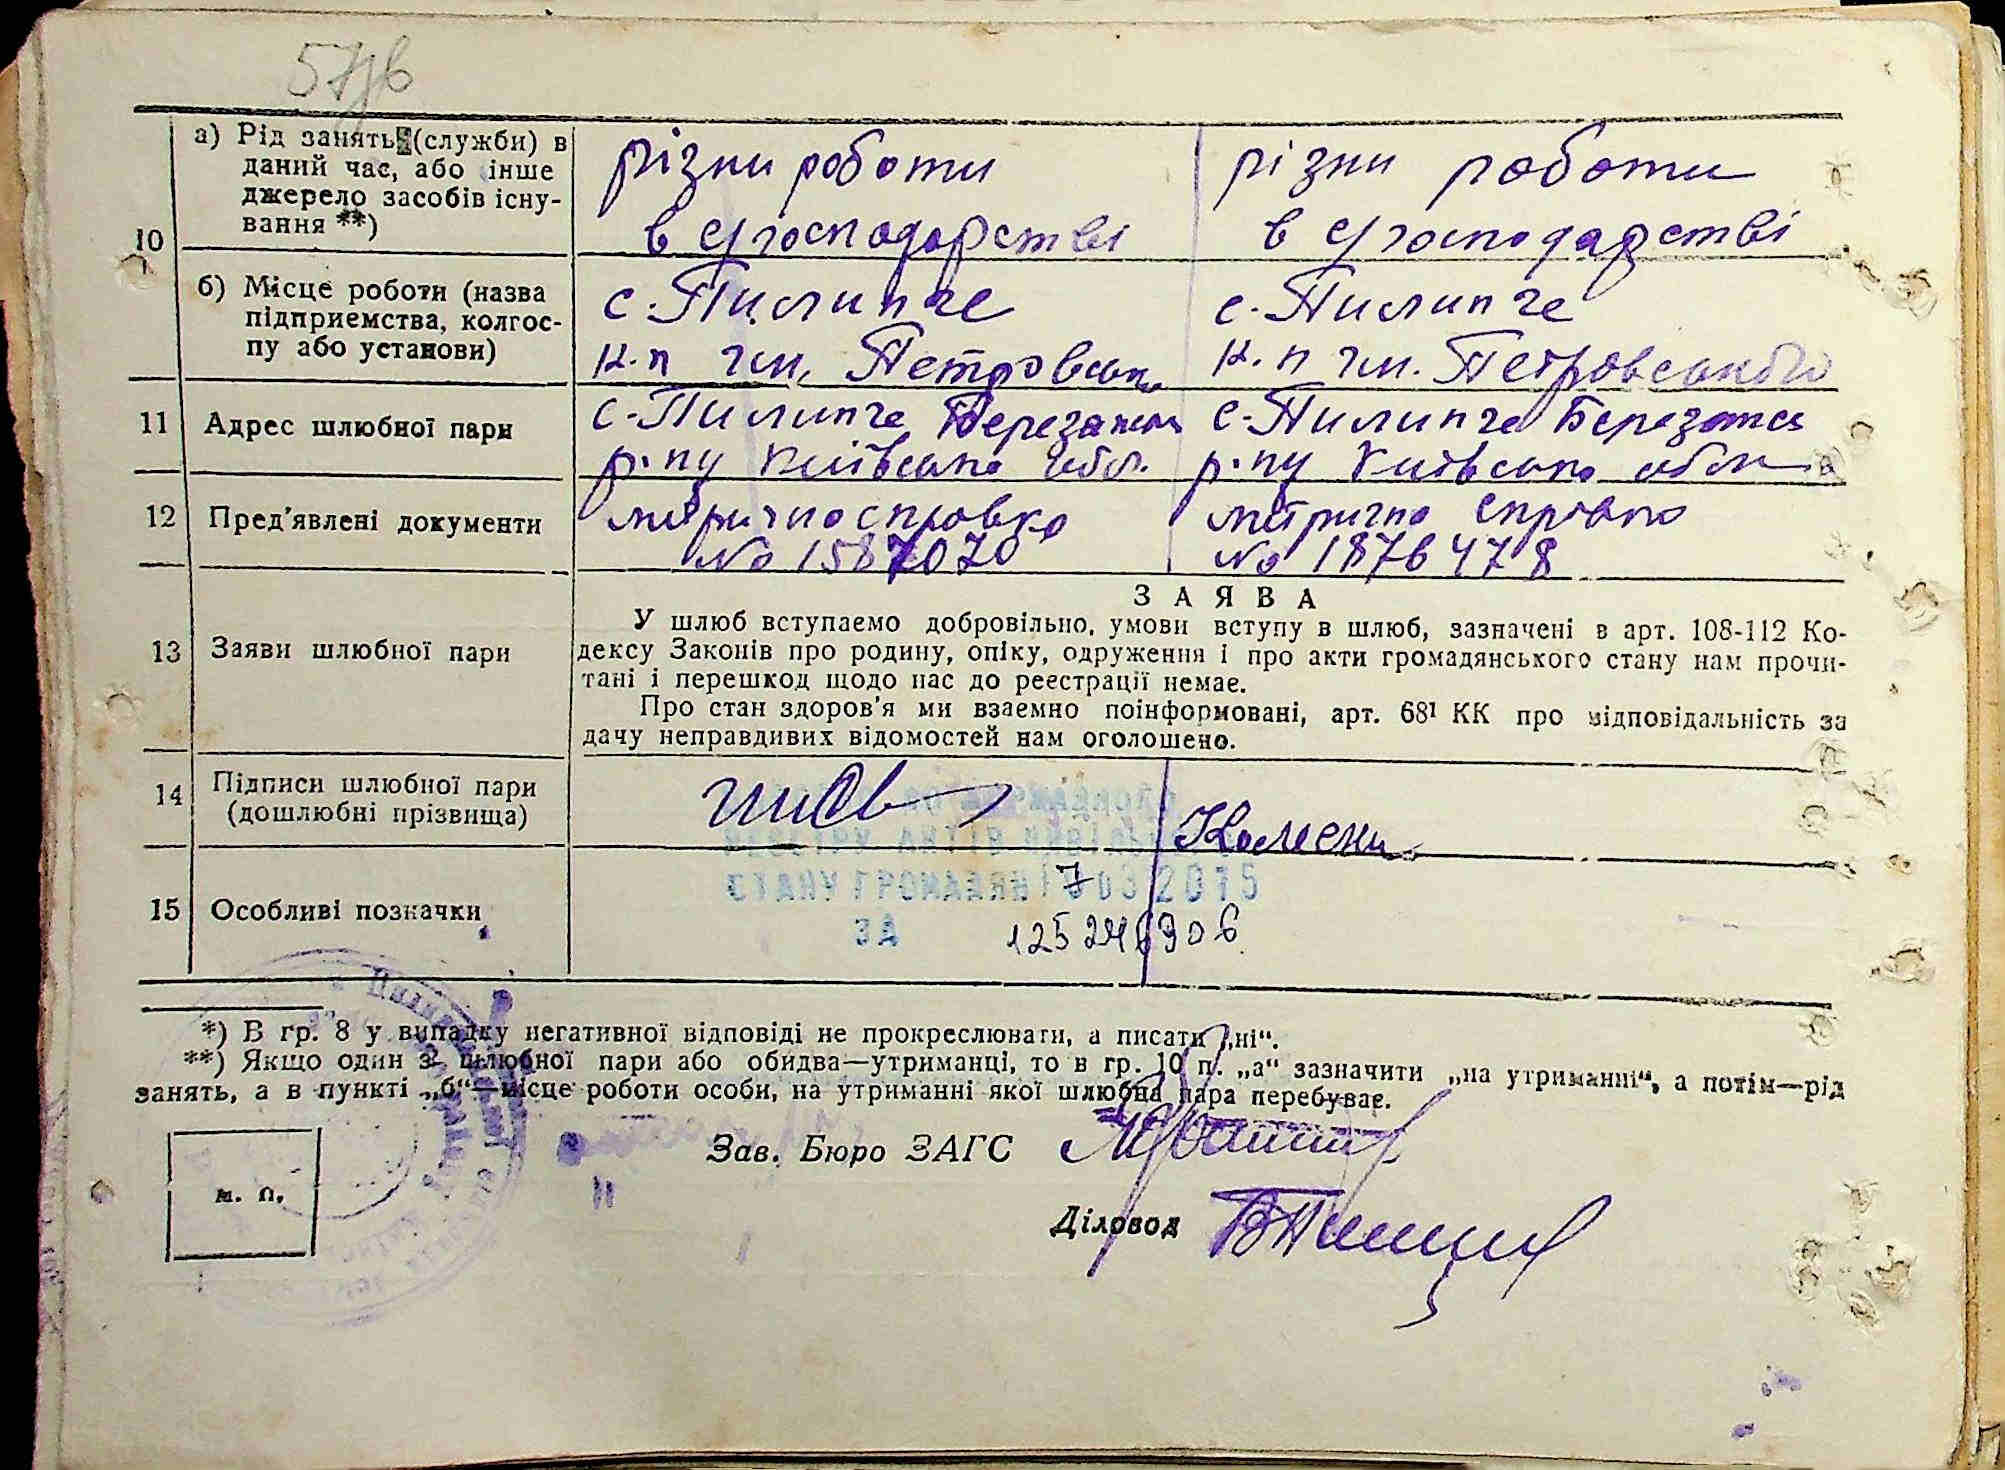 57зв
10
а) Рід занять (служби) в
даний час, або інше
джерело засобів існу-
вання **)
різни роботи
в с/господарстві
різни роботи
в с/господарстві
б) Місце роботи (назва
підприємства, колгос-
пу або установи)
с. Пилипче
к-п ім. Петровськ
с. Пилипче
к-п ім. Петровського
11 Адрес шлюбної пари
с. Пилипче
р-ну Київсько обл.
с. Пилипче
р-ну Київсько обл
12 Пред'явлені документи
метрична справка
No 1587070
метрична справка
No 1876478
13 Заяви шлюбної пари
ЗАЯВА
У шлюб вступаємо добровільно, умови вступу в шлюб, зазначені в арт. 108-112 Ко-
дексу Законів про родину, опіку, одруження і про акти громадянського стану нам прочи-
тані і перешкод щодо нас до реєстрації немає.
Про стан здоров'я ми взаємно поінформовані, арт. 68¹ КК про відповідальність за
дачу неправдивих відомостей нам оголошено.
14 Підписи шлюбної пари
(дошлюбні прізвища)
РЕЄСТРУ АКТІВ
СТАНУ ГРОМАДЯН 03 2015
ЗА
15 Особливі позначки
*) В гр. 8 у випадку негативної відповіді не прокреслювати, а писати „ні“.
**) Якщо один з шлюбної пари або обидва—утриманці, то в гр. 10 п. „а“ зазначити „на утриманні“, а потім—рід
занять, а в пункті „б“—місце роботи особи, на утриманні якої шлюбна пара перебуває.
Зав. Бюро ЗАГС
м. п.
Діловод